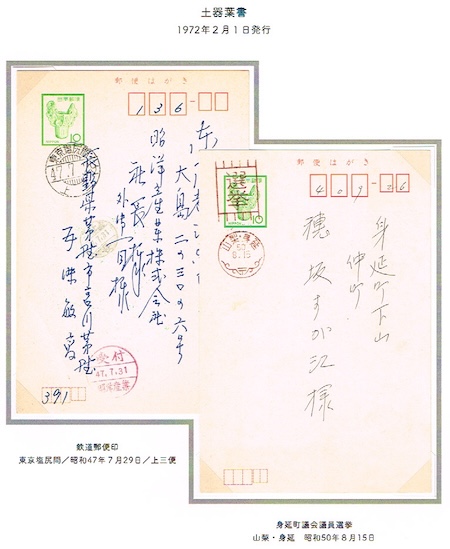 土器葉書
1972年2月1日発行
郵便はがき
136-
大島二の三〇の六号
昭洋産業株式会社
社長様
外一同様
長野県茅野市宮川茅野
391
東京塩尻間
47.7.
上
受付
47.7.31
10
郵便はがき
409-26
選挙
山梨・身延
50
8.15
10
身延町下山
仲町
穂坂すが江様
鉄道郵便印
東京塩尻間／昭和47年7月29日／上三便
身延町議会議員選挙
山梨・身延 昭和50年8月15日